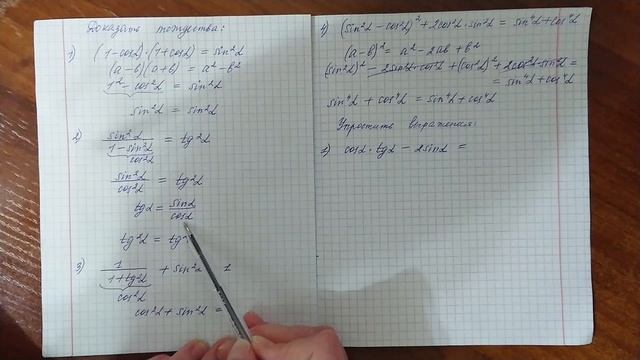 Доказать тождества:
1) (1-cosα)·(1+cosα) = sin²α
(a-b)(a+b) = a²-b²
1² - cos²α = sin²α
sin²α = sin²α
2) sin²α / 1-sin²α = tg²α
cos²α
sin²α / cos²α = tg²α
tgα = sinα / cosα
tg²α = tg²
3) 1 / 1+tg²α + sin²α 1
cos²α
cos²α + sin²α =
4) (sin²α - cos²α)² + 2cos²α·sin²α = sin⁴α + cos⁴α
(a-b)² = a² - 2ab + b²
(sin²α)² - 2sin²α·cos²α + (cos²α)² + 2cos²α·sin²α =
= sin⁴α + cos⁴α
sin⁴α + cos⁴α = sin⁴α + cos⁴α
Упростить выражения:
1) cosα · tgα - 2sinα =